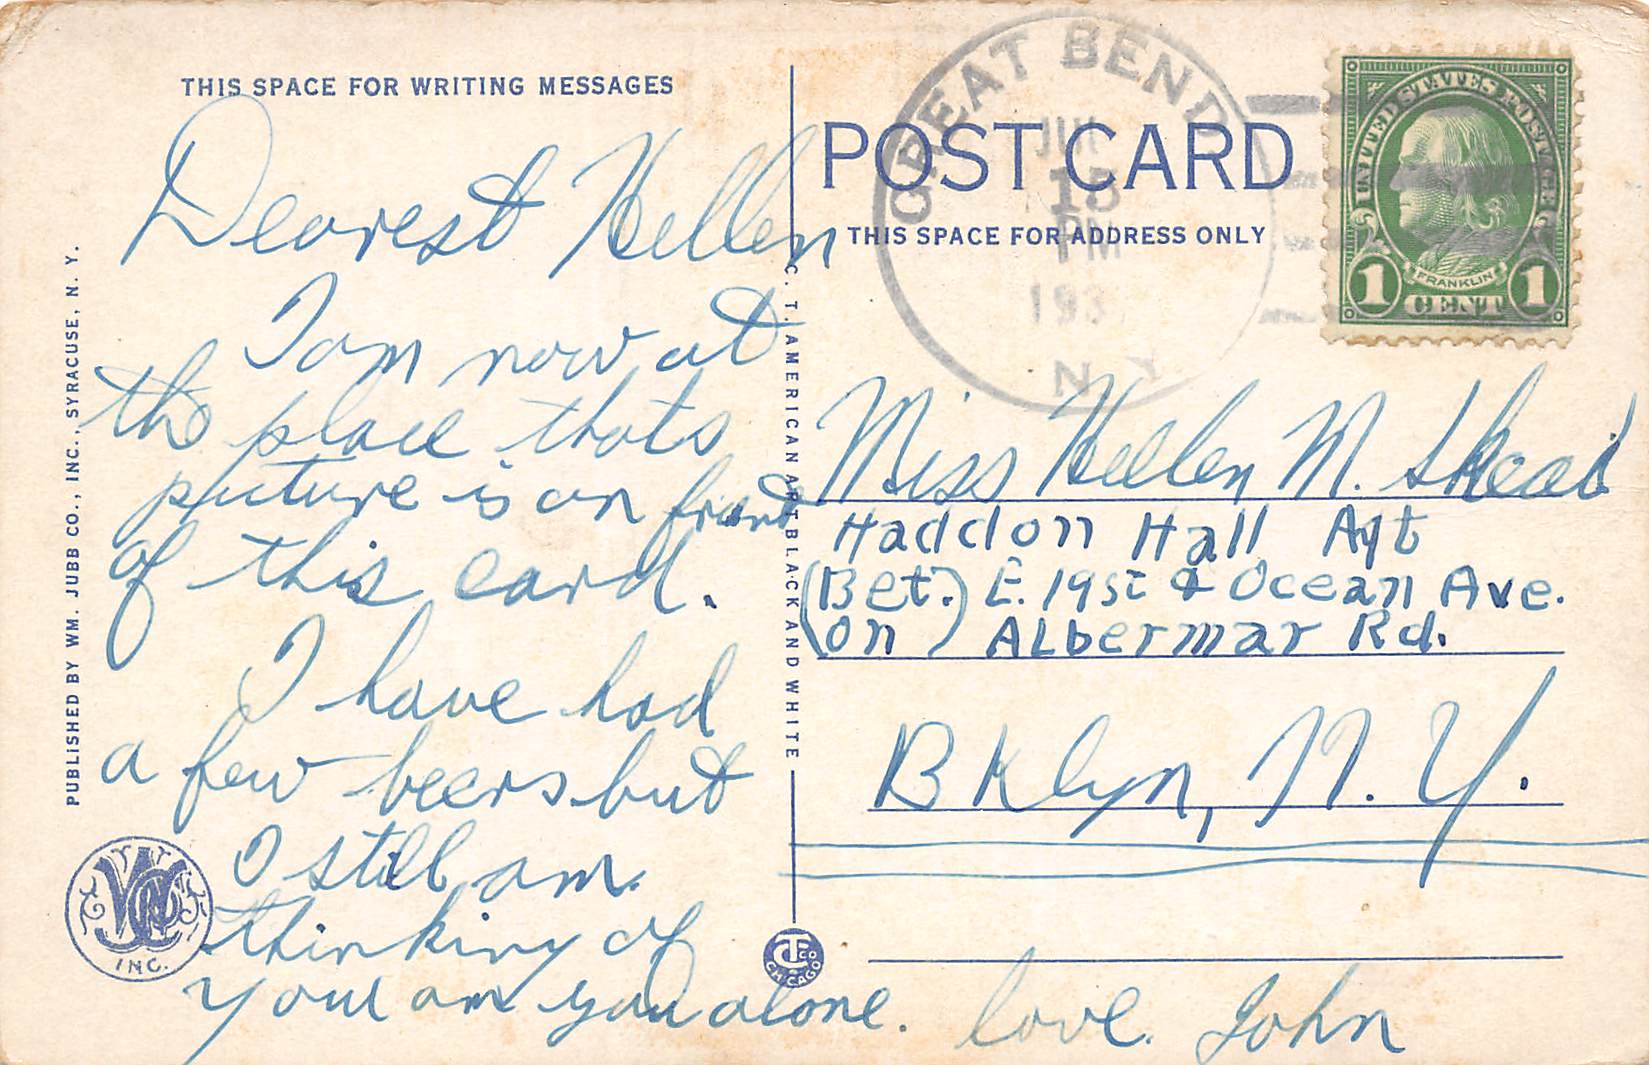 THIS SPACE FOR WRITING MESSAGES
Dearest Hellen
I am now at
the place thats
picture is on front
of this card.
I have had
a few beers but
I still am
thinking of
you am you alone.
love. John
PUBLISHED BY WM. JUBB CO., INC., SYRACUSE, N. Y.
INC.
C. T. AMERICAN ART BLACK AND WHITE
CHICAGO
POST CARD
THIS SPACE FOR ADDRESS ONLY
GREAT BEND
15
PM
193
N Y
UNITED STATES POSTAGE
FRANKLIN
1 CENT 1
Miss Hellen M.
Haddon Hall Apt
(Bet.) E. 19st & Ocean Ave.
(on) ALbermar Rd.
BKlyn, N. Y.